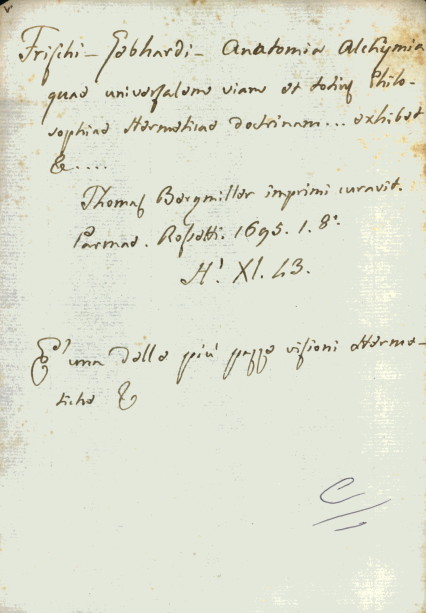 Frischi - Gebhardi - Anatomia Alchymia
quae universalem viam et totius Philo-
sophiae Hermeticae doctrinam... exhibet
&....
Thomas Bergmiller imprimi curavit.
Parmae. Rossetti. 1695. 1. 8.°
H! XI. 43.
E' una delle più pazze visioni Herme-
tiche &
C